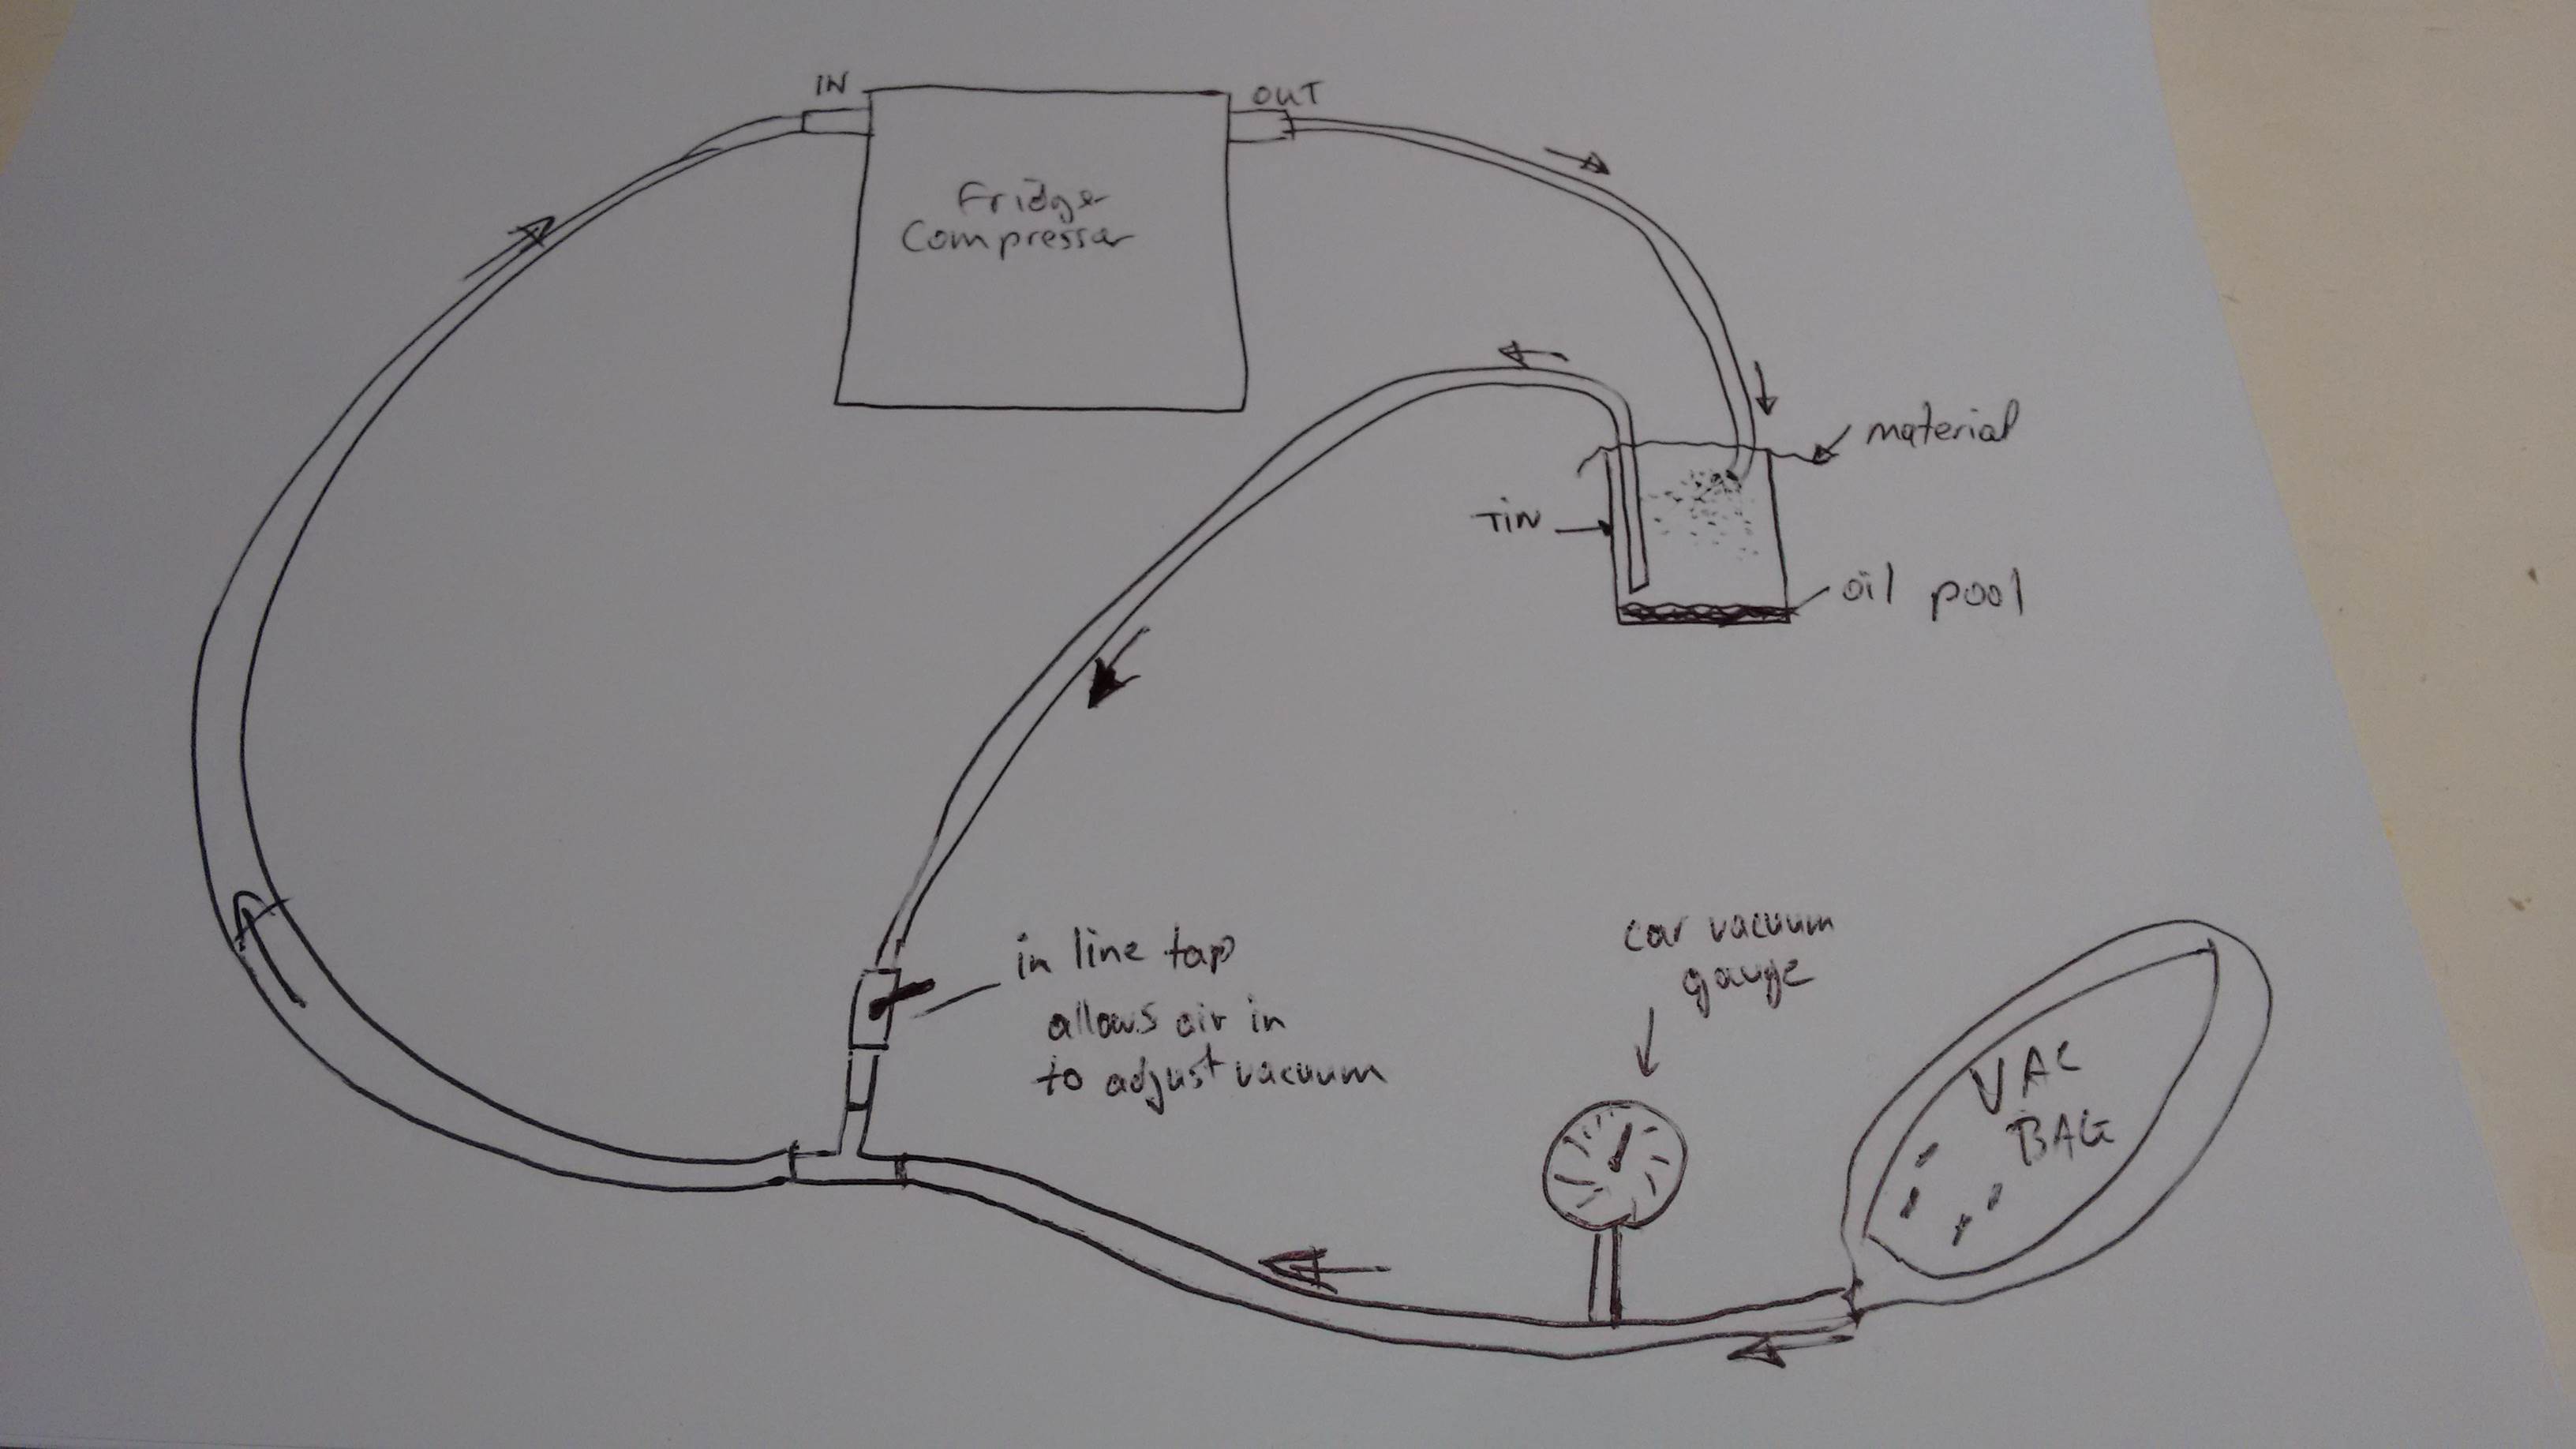 IN
OUT
Fridge
Compressor
material
TIN
oil pool
in line tap
allows air in
to adjust vacuum
car vacuum
gauge
VAC
BAG